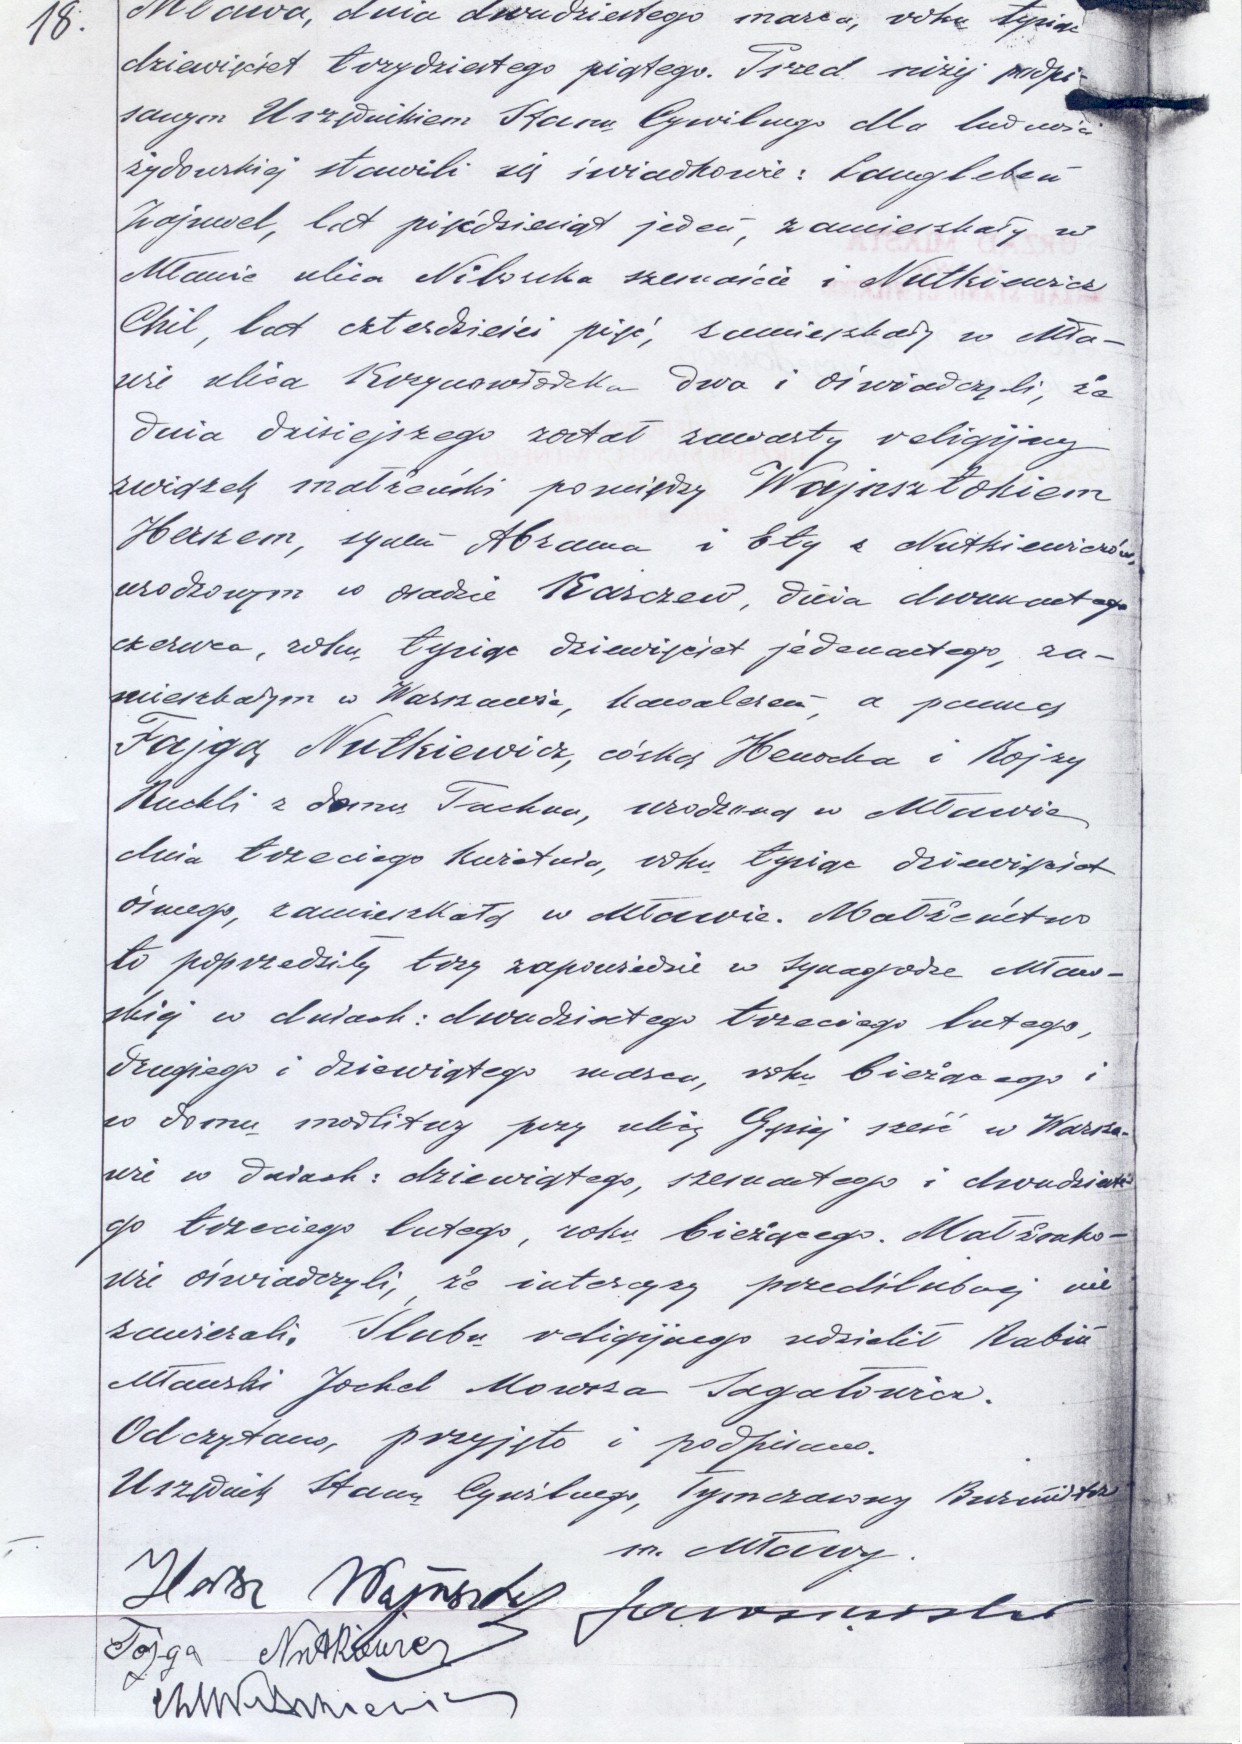 18.
Mława, dnia dwudziestego marca, roku tysiąc
dziewięćset trzydziestego piątego. Przed niżej podpi-
sanym Urzędnikiem Stanu Cywilnego dla ludności
żydowskiej stawili się świadkowie: Langleben
Zajnwel, lat pięćdziesiąt jeden, zamieszkały w
Mławie ulica Niborska szesnaście i Nutkiewicz
Chil, lat czterdzieści pięć, zamieszkały w Mła-
wie ulica Krzynowłodzka dwa i oświadczyli, że
dnia dzisiejszego został zawarty religijny
związek małżeński pomiędzy Wajnsztokiem
Herszem, synem Abrama i Ety z Nutkiewiczów,
urodzonym w osadzie Karczew, dnia dwunastego
czerwca, roku tysiąc dziewięćset jedenastego, za-
mieszkałym w Warszawie, kawalerem, a panną
Fajgą Nutkiewicz, córką Henocha i Rojzy
Ruchli z domu Tachna, urodzoną w Mławie
dnia trzeciego kwietnia, roku tysiąc dziewięćset
ósmego, zamieszkałą w Mławie. Małżeństwo
to poprzedziły trzy zapowiedzie w synagodze Mław-
skiej w dniach: dwudziestego trzeciego lutego,
drugiego i dziewiątego marca, roku bieżącego i
w domu modlitwy przy ulicy Gęsiej sześć w Warsza-
wie w dniach: dziewiątego, szesnastego i dwudzieste-
go trzeciego lutego, roku bieżącego. Małżonko-
wie oświadczyli, że intercyzy przedślubnej nie
zawierali. Ślubu religijnego udzielił Rabin
Mławski Jochel Mowsza Sagałowicz.
Odczytano, przyjęto i podpisano.
Urzędnik Stanu Cywilnego, Tymczasowy Burmistrz
m. Mławy.
Hersz Wajnsztok
Fajga Nutkiewicz
Ch Nutkiewicz